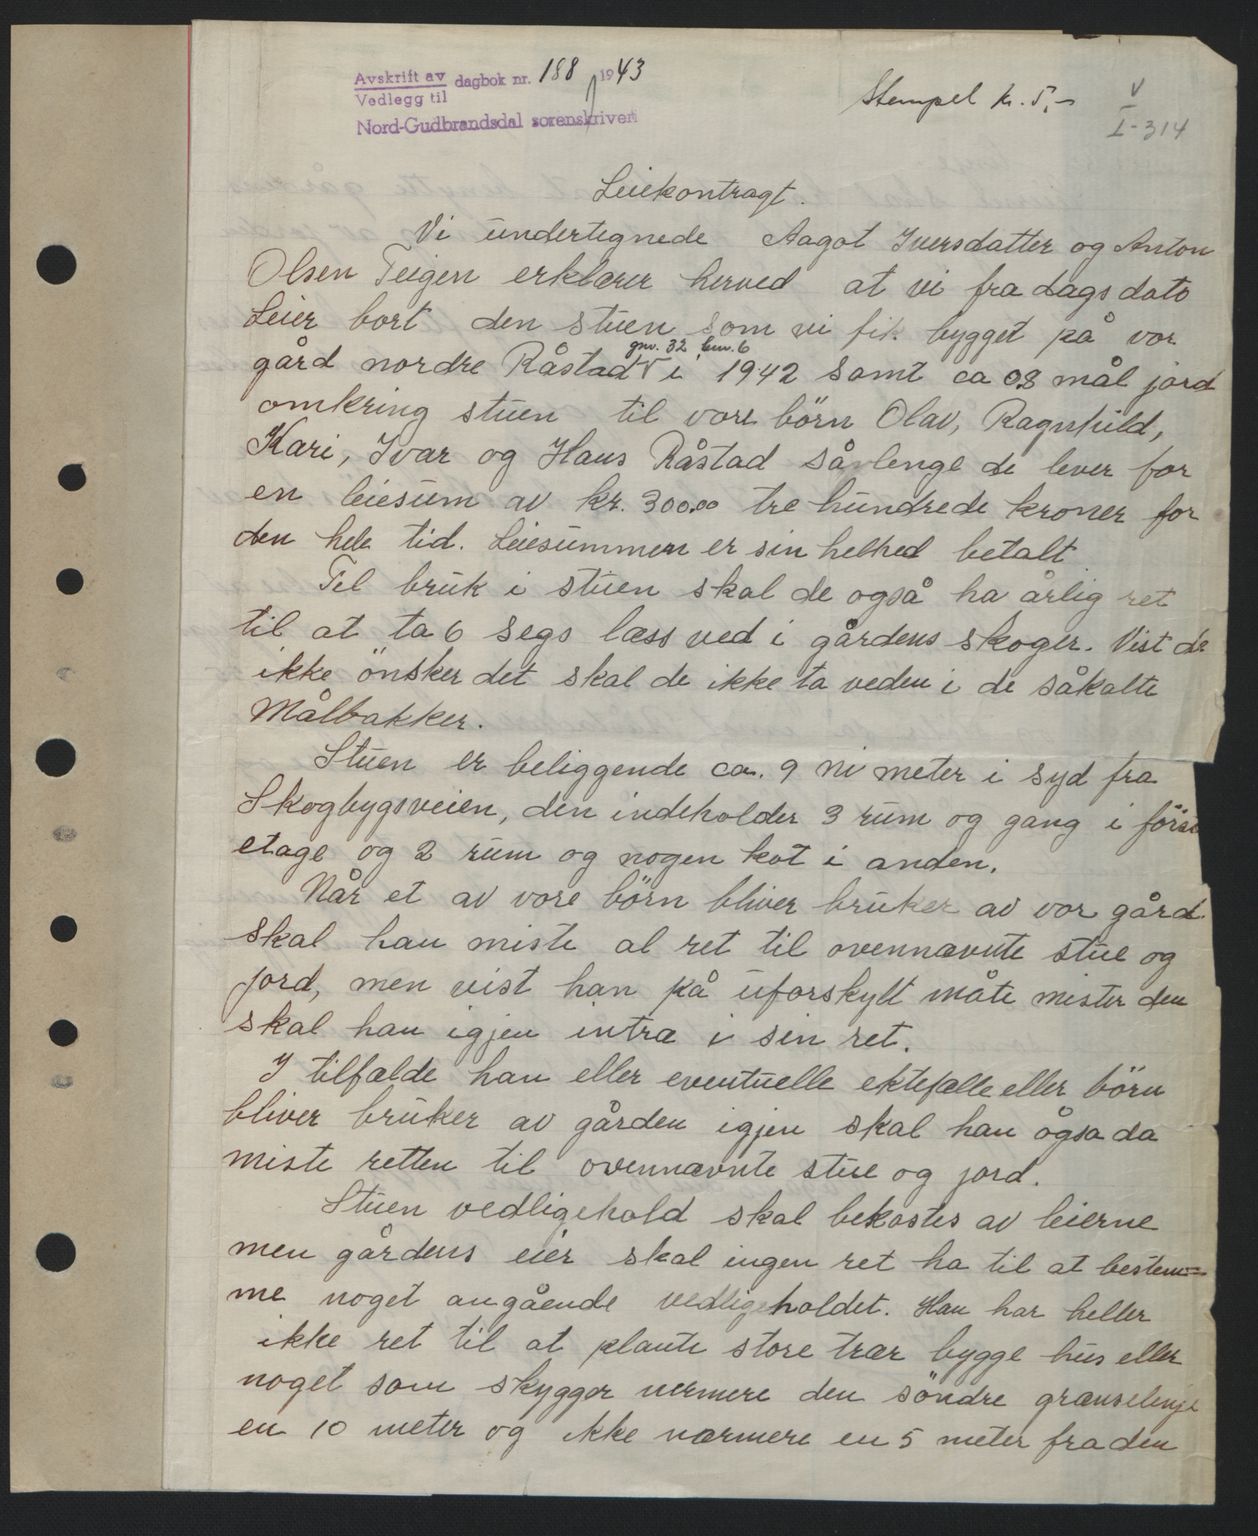 Avskrift av dagbok nr. 188 1943
Vedlegg til
Nord-Gudbrandsdal sorenskriveri
Stempel kr. 5,-
V
I-314
Leiekontragt.
Vi undertegnede Aagot Iversdatter og Anton
Olsen Teigen erklærer herved at vi fra dags dato
Leier bort den stuen som vi fik bygget på vor
gnr. 32 bnr. 6
gård nordre Råstad V i 1942 samt ca 0.8 mål jord
omkring stuen til vore börn Olav, Ragnhild,
Kari, Ivar og Hans Råstad sålenge de lever for
en leiesum av kr. 300.00 tre hundrede kroner for
den hele tid. Leiesummen er sin helhed betalt
Til bruk i stuen skal de også ha årlig ret
til at ta 6 segs læss ved i gårdens skoger. Vist de
ikke önsker det skal de ikke ta veden i de såkalte
Målbakker.
Stuen er beliggende ca. 9 ni meter i syd fra
Skogbygsveien, den indeholder 3 rum og gang i förste
etage og 2 rum og nogen kot i anden.
Når et av vore börn bliver bruker av vor gård
skal han miste al ret til ovennævnte stue og
jord, men vist han på uforskylt måte mister den
skal han igjen intræ i sin ret.
I tilfælde han eller eventuelle ektefælle eller börn
bliver bruker av gården igjen skal han ågsa da
miste retten til ovennævnte stue og jord.
Stuen vedligehold skal bekostes av leierne
men gårdens eier skal ingen ret ha til at bestem=
me noget angående vedligeholdet. Han har heller
ikke ret til at plante store trær bygge hus eller
noget som skygger nermere den söndre grænselinje
en 10 meter og ikke nærmere en 5 meter fra den